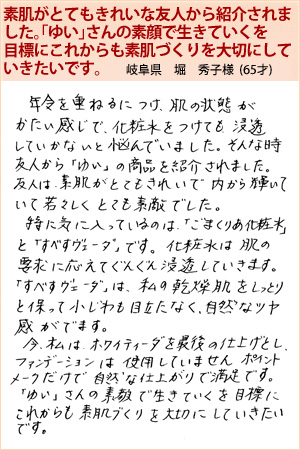 素肌がとてもきれいな友人から紹介されま
した。「ゆい」さんの素顔で生きていくを
目標にこれからも素肌づくりを大切にして
いきたいです。　岐阜県　堀　秀子様（65才）
年令を重ねるにつけ、肌の状態が
かたい感じで、化粧水をつけても浸透
していかないと悩んでいました。そんな時
友人から「ゆい」の商品を紹介されました。
友人は、素肌がとてもきれいで内から輝いて
いて若々しくとても素敵でした。
特に気に入っているのは、「ごまくりあ化粧水」
と「すべすヴェーダ」です。化粧水は肌の
要求に応えてぐんぐん浸透していきます。
「すべすヴェーダ」は、私の乾燥肌をしっとり
と保って小じわも目立たなく、自然なツヤ
感がでます。
今、私はホワイティーダを最後の仕上げとし、
ファンデーションは使用していません ポイント
メークだけで自然な仕上がりで満足です。
「ゆい」さんの素敵で生きていくを目標に
これからも素肌づくりを大切にしていきたい
です。